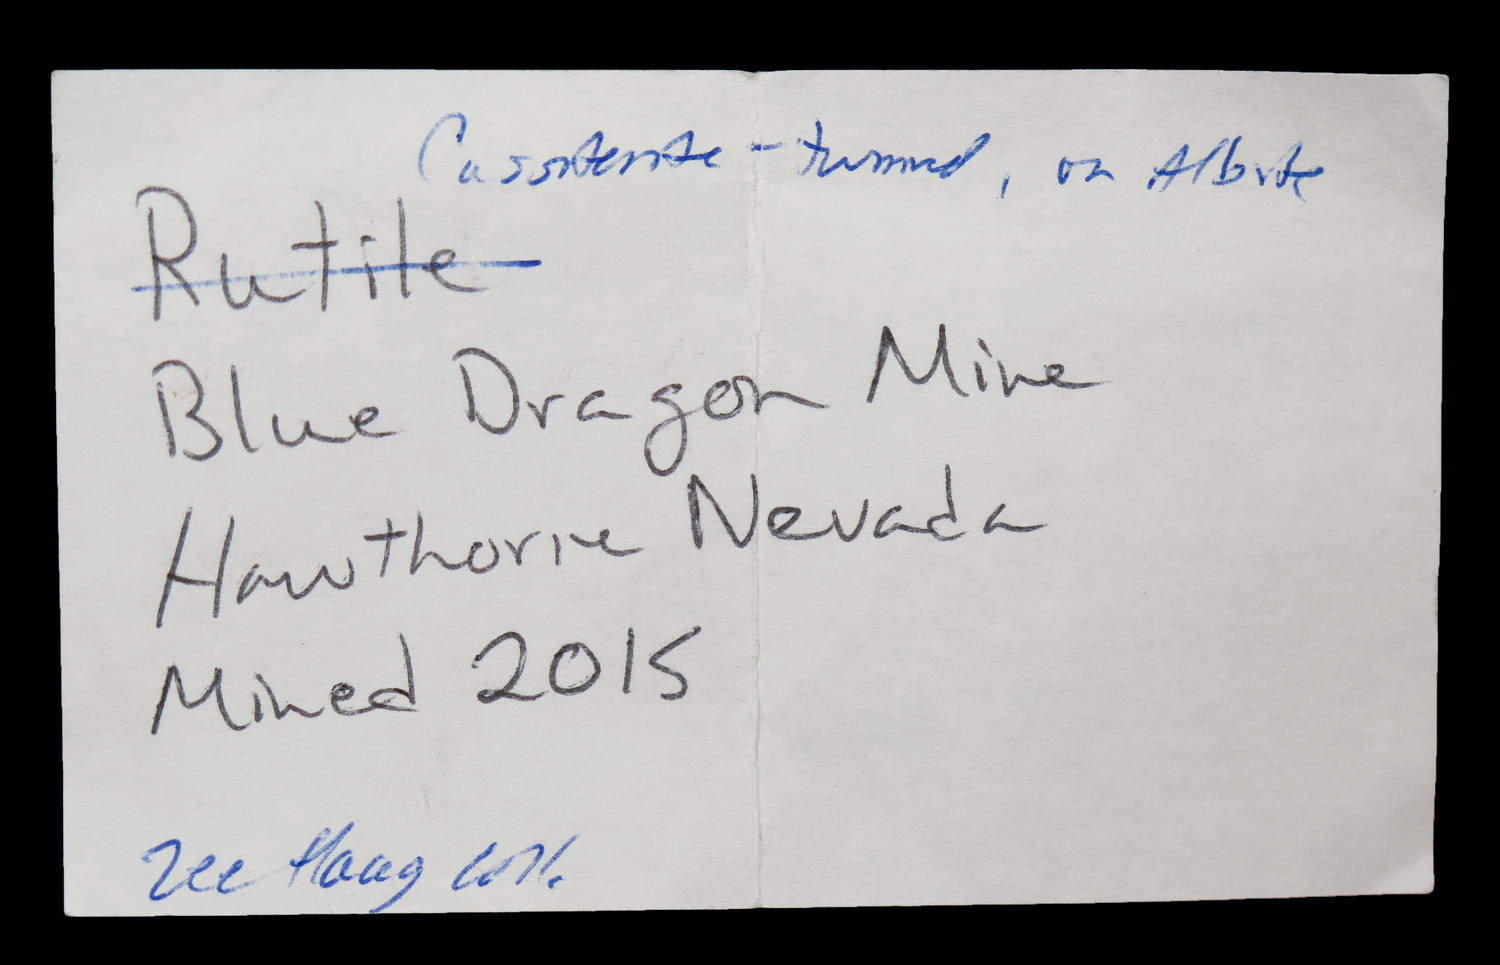 Cassiterite - twinned, on Albite
Rutile
Blue Dragon Mine
Hawthorne Nevada
Mined 2015
Haag coll.